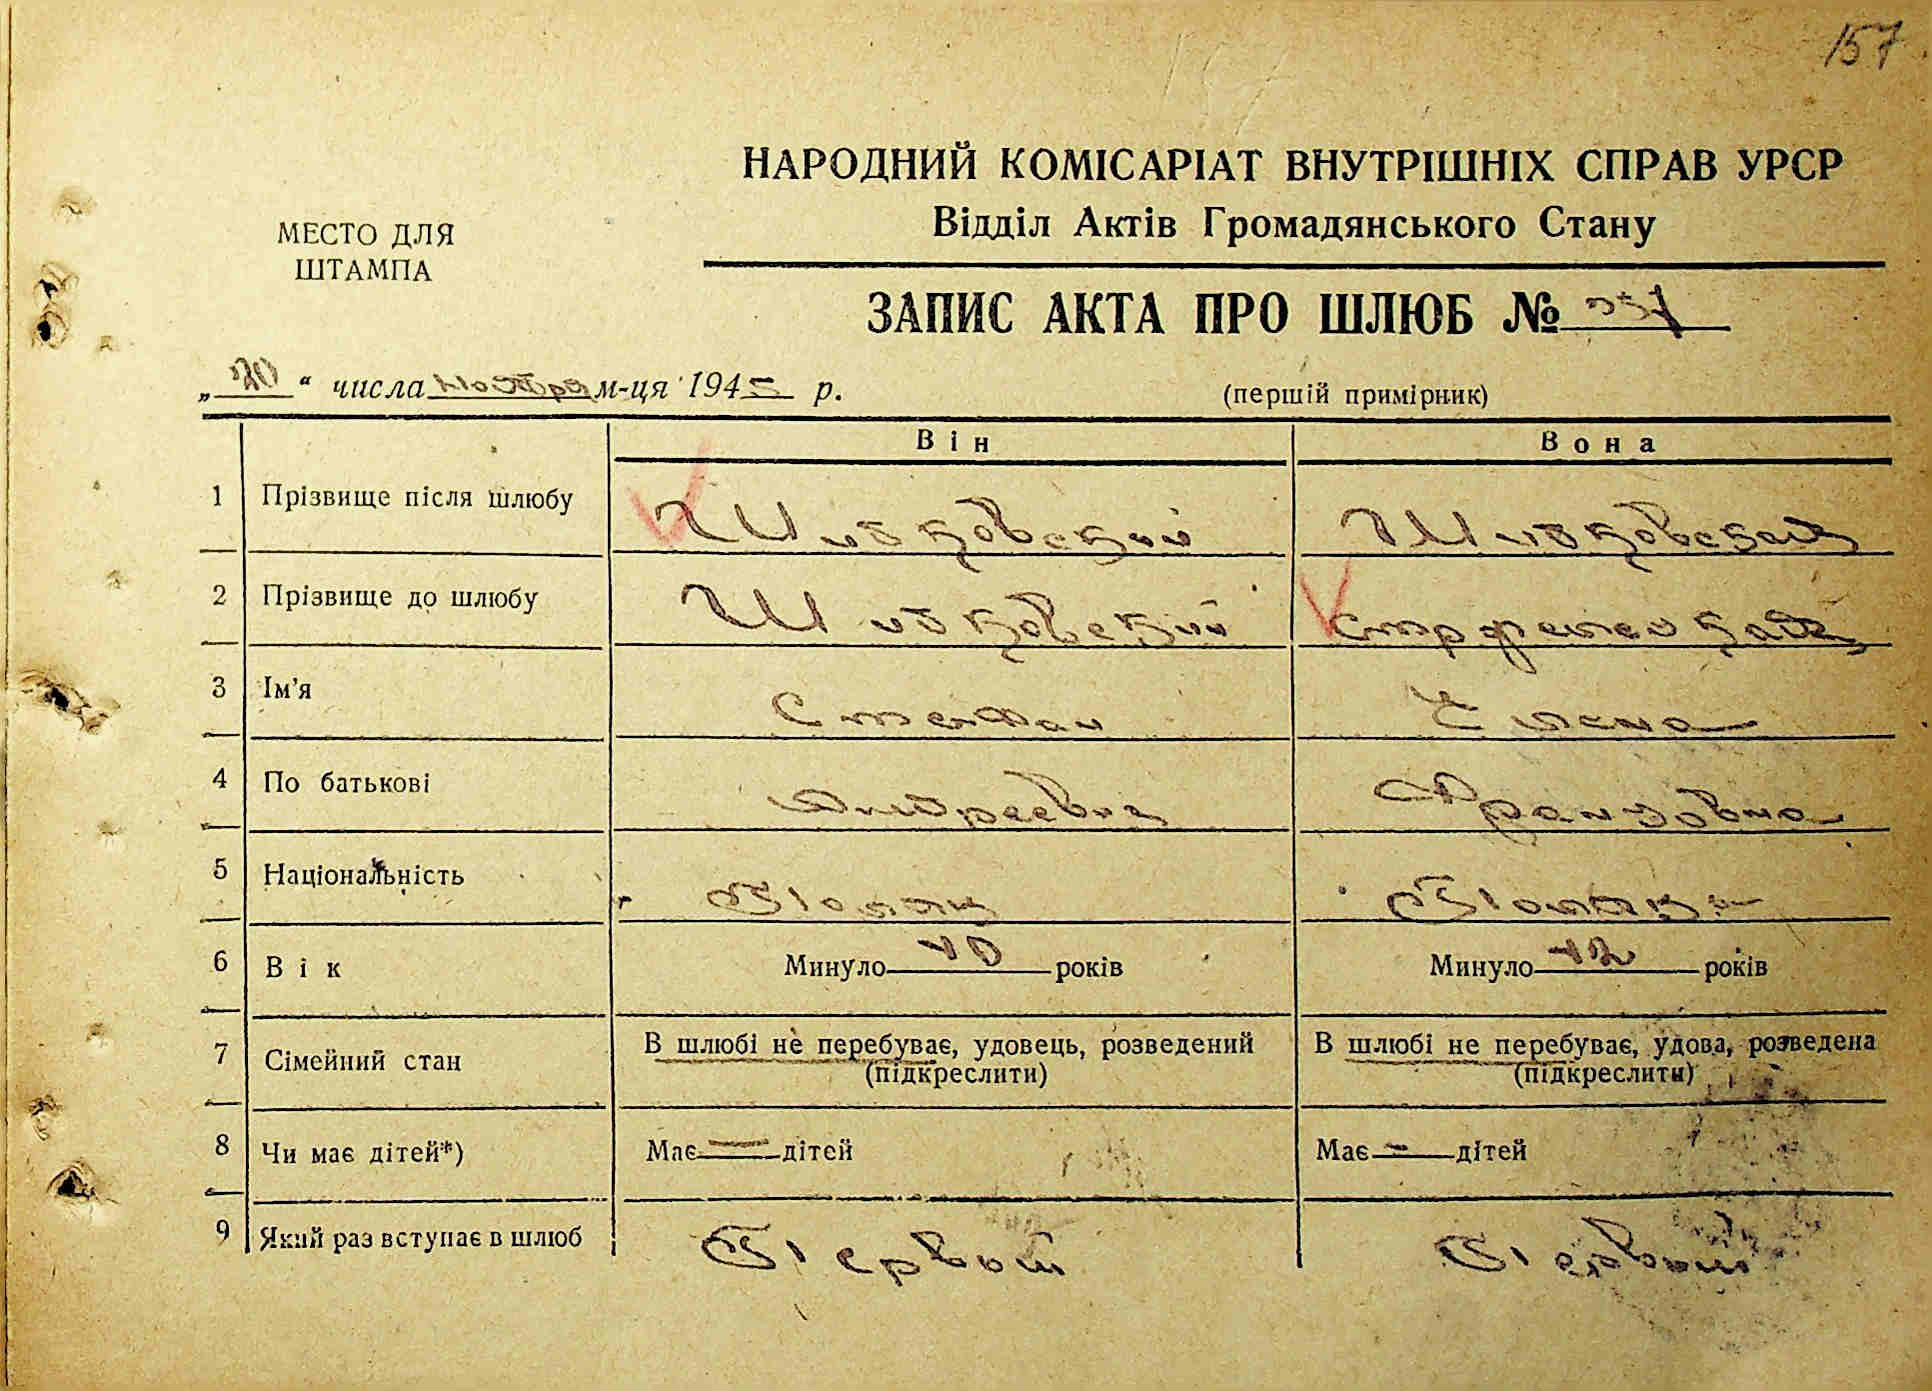 157
НАРОДНИЙ КОМІСАРІАТ ВНУТРІШНІХ СПРАВ УРСР
Відділ Актів Громадянського Стану
МЕСТО ДЛЯ
ШТАМПА
ЗАПИС АКТА ПРО ШЛЮБ №
„20“ числа ноября м-ця 1945 р.
(першій примірник)
Він Вона
1 Прізвище після шлюбу Шибковский Шибковская
2 Прізвище до шлюбу Шибковский
3 Ім'я Степан Елена
4 По батькові Андреевич Францовна
5 Національність Поляк Полька
6 Вік Минуло 40 років Минуло 42 років
7 Сімейний стан В шлюбі не перебуває, удовець, розведений В шлюбі не перебуває, удова, розведена
(підкреслити) (підкреслити)
8 Чи має дітей*) Має — дітей Має — дітей
9 Який раз вступає в шлюб Первый Первый